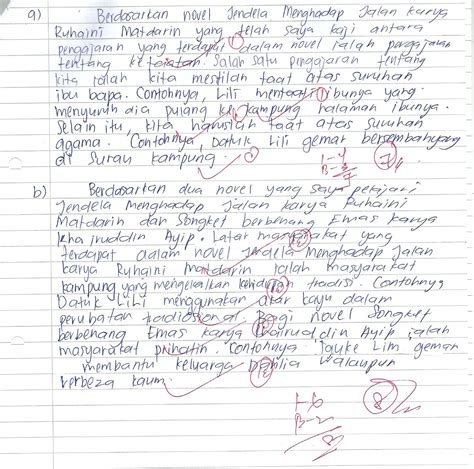 a) Berdasarkan novel Jendela Menghadap Jalan karya
Ruhaini Matdarin yang telah saya kaji antara
pengajaran yang terdapat dalam novel ialah pengajaran
tentang ketaatan. Salah satu pengajaran tentang
kita ialah kita mestilah taat atas suruhan
ibu bapa. Contohnya, Lili mentaati ibunya yang
menyuruh dia pulang ke kampung halaman ibunya.
Selain itu, kita haruslah taat atas suruhan
agama. Contohnya, Datuk Lili gemar bersembahyang
di surau kampung.
b) Berdasarkan dua novel yang saya pelajari
Jendela Menghadap Jalan karya Ruhaini
Matdarin dan Songket berbenang Emas karya
Khairuddin Ayip. Latar masyarakat yang
terdapat dalam novel Jendela Menghadap Jalan
karya Ruhaini Matdarin ialah masyarakat
kampung yang mengekalkan kehidupan tradisi. Contohnya
Datuk Lili menggunakan akar kayu dalam
perubatan Bagi novel Songket
berbenang Emas karya Khairuddin Ayip ialah
masyarakat prihatin. Contohnya Jauke Lim gemar
membantu keluarga Dahlia walaupun
berbeza kaum.
B-2
8